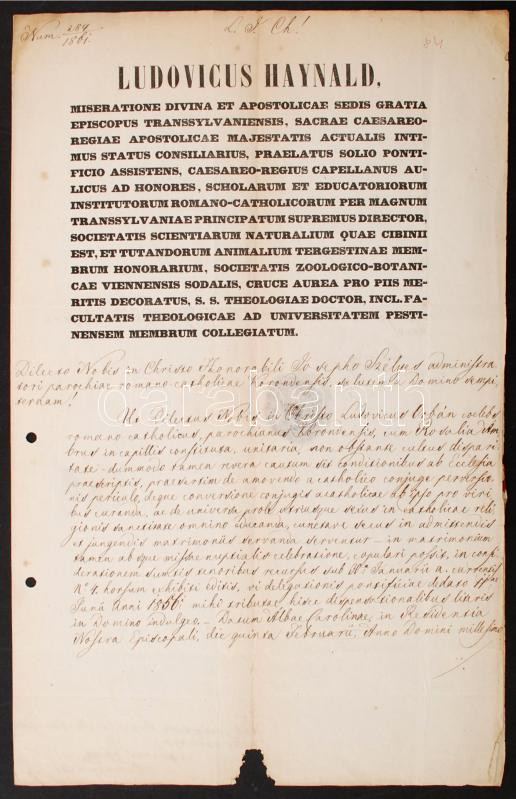 Num. 284/1861.
L. J. Ch!
LUDOVICUS HAYNALD,
MISERATIONE DIVINA ET APOSTOLICAE SEDIS GRATIA
EPISCOPUS TRANSSYLVANIENSIS, SACRAE CAESAREO-
REGIAE APOSTOLICAE MAJESTATIS ACTUALIS INTI-
MUS STATUS CONSILIARIUS, PRAELATUS SOLIO PONTI-
FICIO ASSISTENS, CAESAREO-REGIUS CAPELLANUS AU-
LICUS AD HONORES, SCHOLARUM ET EDUCATORIORUM
INSTITUTORUM ROMANO-CATHOLICORUM PER MAGNUM
TRANSSYLVANIAE PRINCIPATUM SUPREMUS DIRECTOR,
SOCIETATIS SCIENTIARUM NATURALIUM QUAE CIBINII
EST, ET TUTANDORUM ANIMALIUM TERGESTINAE MEM-
BRUM HONORARIUM, SOCIETATIS ZOOLOGICO-BOTANI-
CAE VIENNENSIS SODALIS, CRUCE AUREA PRO PIIS ME-
RITIS DECORATUS, S. S. THEOLOGIAE DOCTOR, INCL. FA-
CULTATIS THEOLOGICAE AD UNIVERSITATEM PESTI-
NENSEM MEMBRUM COLLEGIATUM.
Dilecto Nobis in Christo Honorabili Josepho administra-
tori parochiae romano-catholicae Korondensis, salutem in Domino sempi-
ternam!
Ut Dilectus Nobis in Christo Ludovicus Orbán coelebs
romano catholicus, parochianus Korondensis, cum Rosalia Am-
brus in capillis constituta, unitaria, non obstante cultus dispari-
tate – dummodo tamen revera cautum sit conditionibus ab Ecclesia
praescriptis, praesertim de amovendo a catholico conjuge perversio-
nis periculo, deque conversione conjugis acatholicae ab ipso pro viri-
bus curanda, ac de universa prole utriusque sexus in catholicae reli-
gionis sanctitate omnino educanda, cunctave secus in admittendis
et jungendis matrimoniis servanda serventur – in matrimonium
tamen absque missae nuptialis celebratione, copulari possit, in consi-
derationem sub Januarii a. currentis
N° 4. horsum exhibiti editis, vi delegationis pontificiae de dato
Junii anni 1856 mihi tributae hisce dispensationalibus literis
in Domino indulgeo. – Datum Albae Carolinae, in Residentia
Nostra Episcopali, die quinta Februarii, Anno Domini millesimo
darabanth